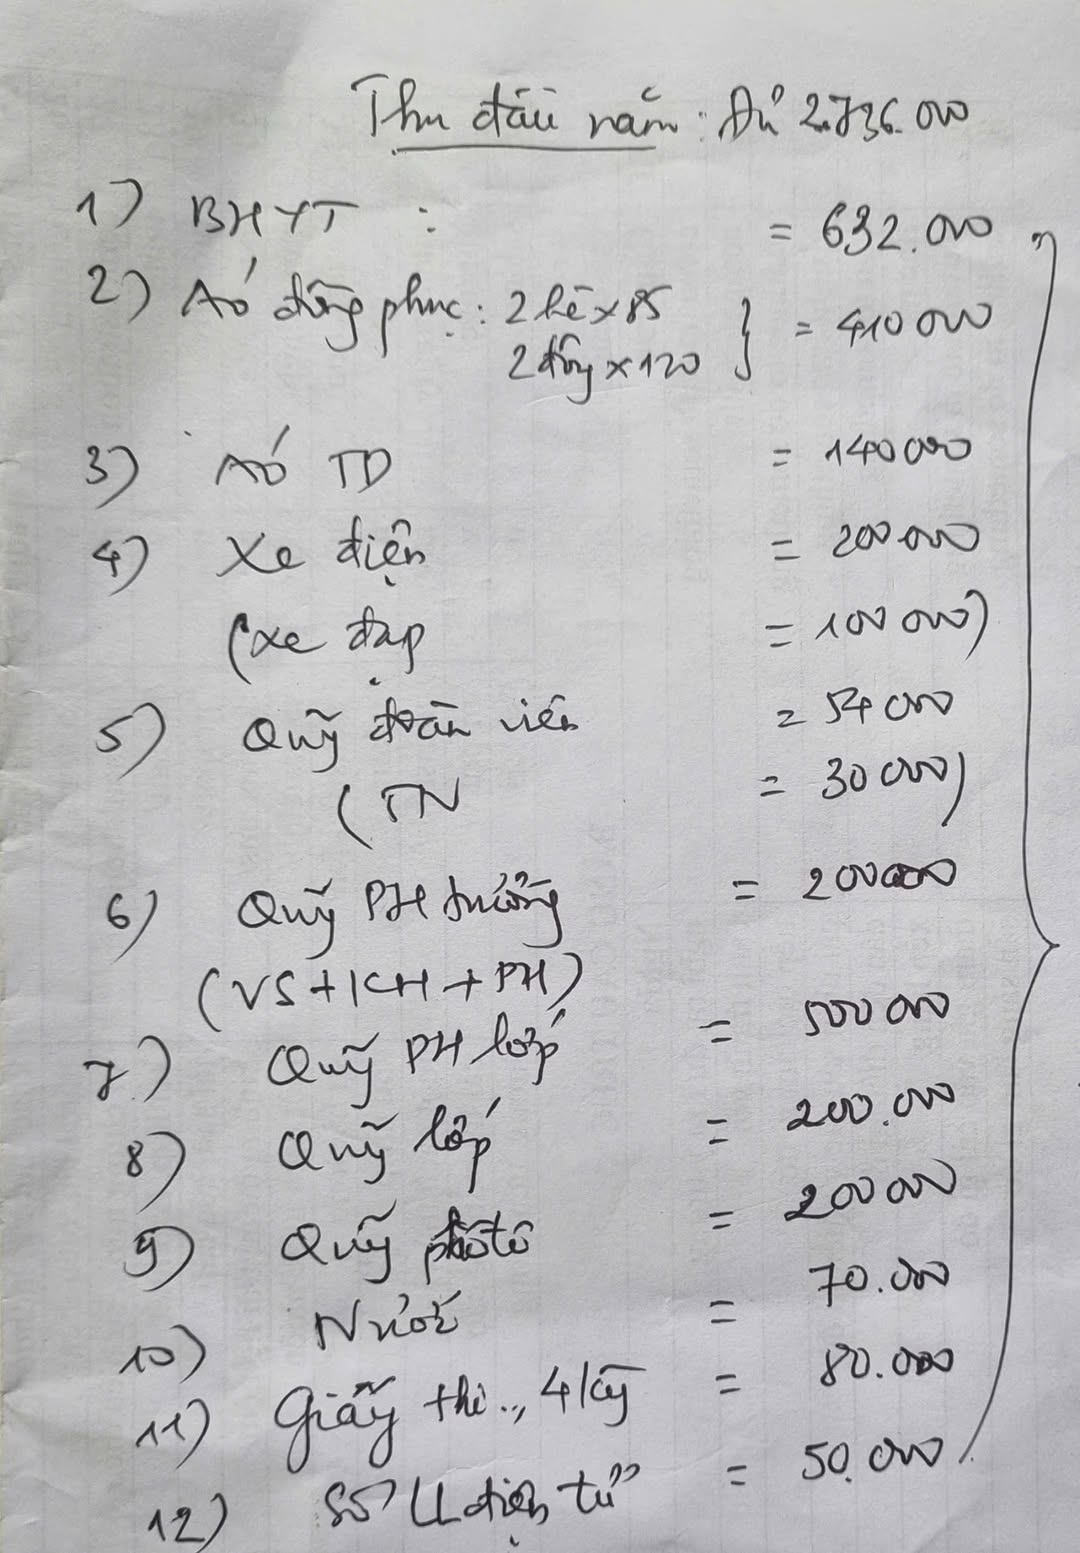 Thu đầu năm: Đủ 2.736.000
1) BHYT : = 632.000
2) Áo đồng phục: 2 hè x 85 } = 410 000
2 đông x 120
3) Áo TD = 140 000
4) Xe điện = 200 000
(xe đạp = 100 000)
5) Quỹ đoàn viên = 54 000
(TN = 30 000)
6) Quỹ PH trường = 200 000
(VS + KH + PH)
7) Quỹ PH lớp = 500 000
8) Quỹ lớp = 200.000
9) Quỹ phôtô = 200 000
10) Nước = 70.000
11) Giấy thi .., 4 kỳ = 80.000
12) Sổ LL điện tử = 50.000